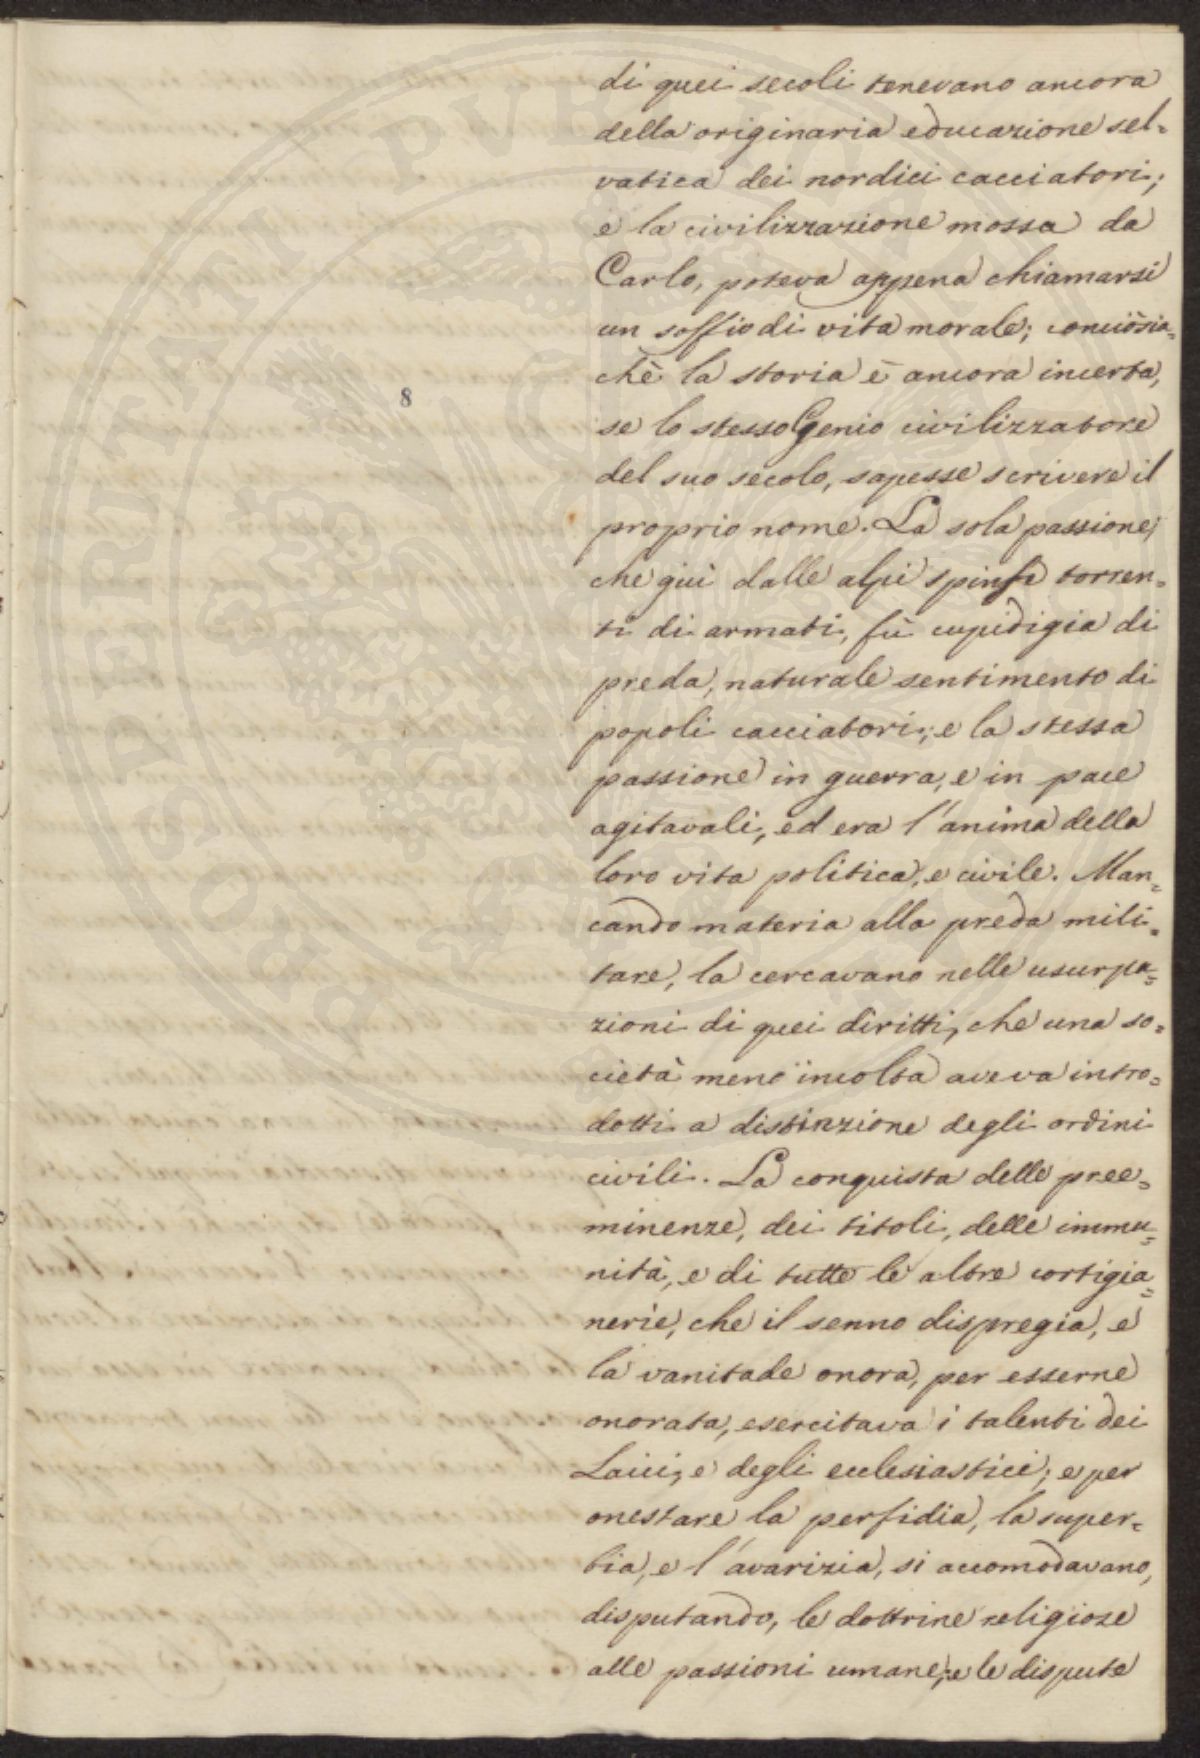 di quei secoli tenevano ancora
della originaria educazione sel=
vatica dei nordici cacciatori;
e la civilizzazione mossa da
Carlo, poteva appena chiamarsi
un soffio di vita morale; conciòsia=
chè la storia è ancora incerta,
8
se lo stesso Genio civilizzatore
del suo secolo, sapesse scrivere il
proprio nome. La sola passione,
che giù dalle alpi spinse torren=
ti di armati, fù cupidigia di
preda, naturale sentimento di
popoli cacciatori; e la stessa
passione in guerra, e in pace
agitavali, ed era l'anima della
loro vita politica, e civile. Man=
cando materia alla preda mili=
tare, la cercavano nelle usurpa=
zioni di quei diritti, che una so=
cietà meno incolta aveva intro=
dotti a distinzione degli ordini
civili. La conquista delle pree=
minenze, dei titoli, delle immu=
nità, e di tutte le altre cortigia=
nerìe, che il senno dispregia, e
la vanitade onora, per esserne
onorata, esercitava i talenti dei
Laici, e degli ecclesiastici; e per
onestare la perfidia, la super=
bia, e l'avarizia, si accomodavano,
disputando, le dottrine religiose
alle passioni umane; e le dispute